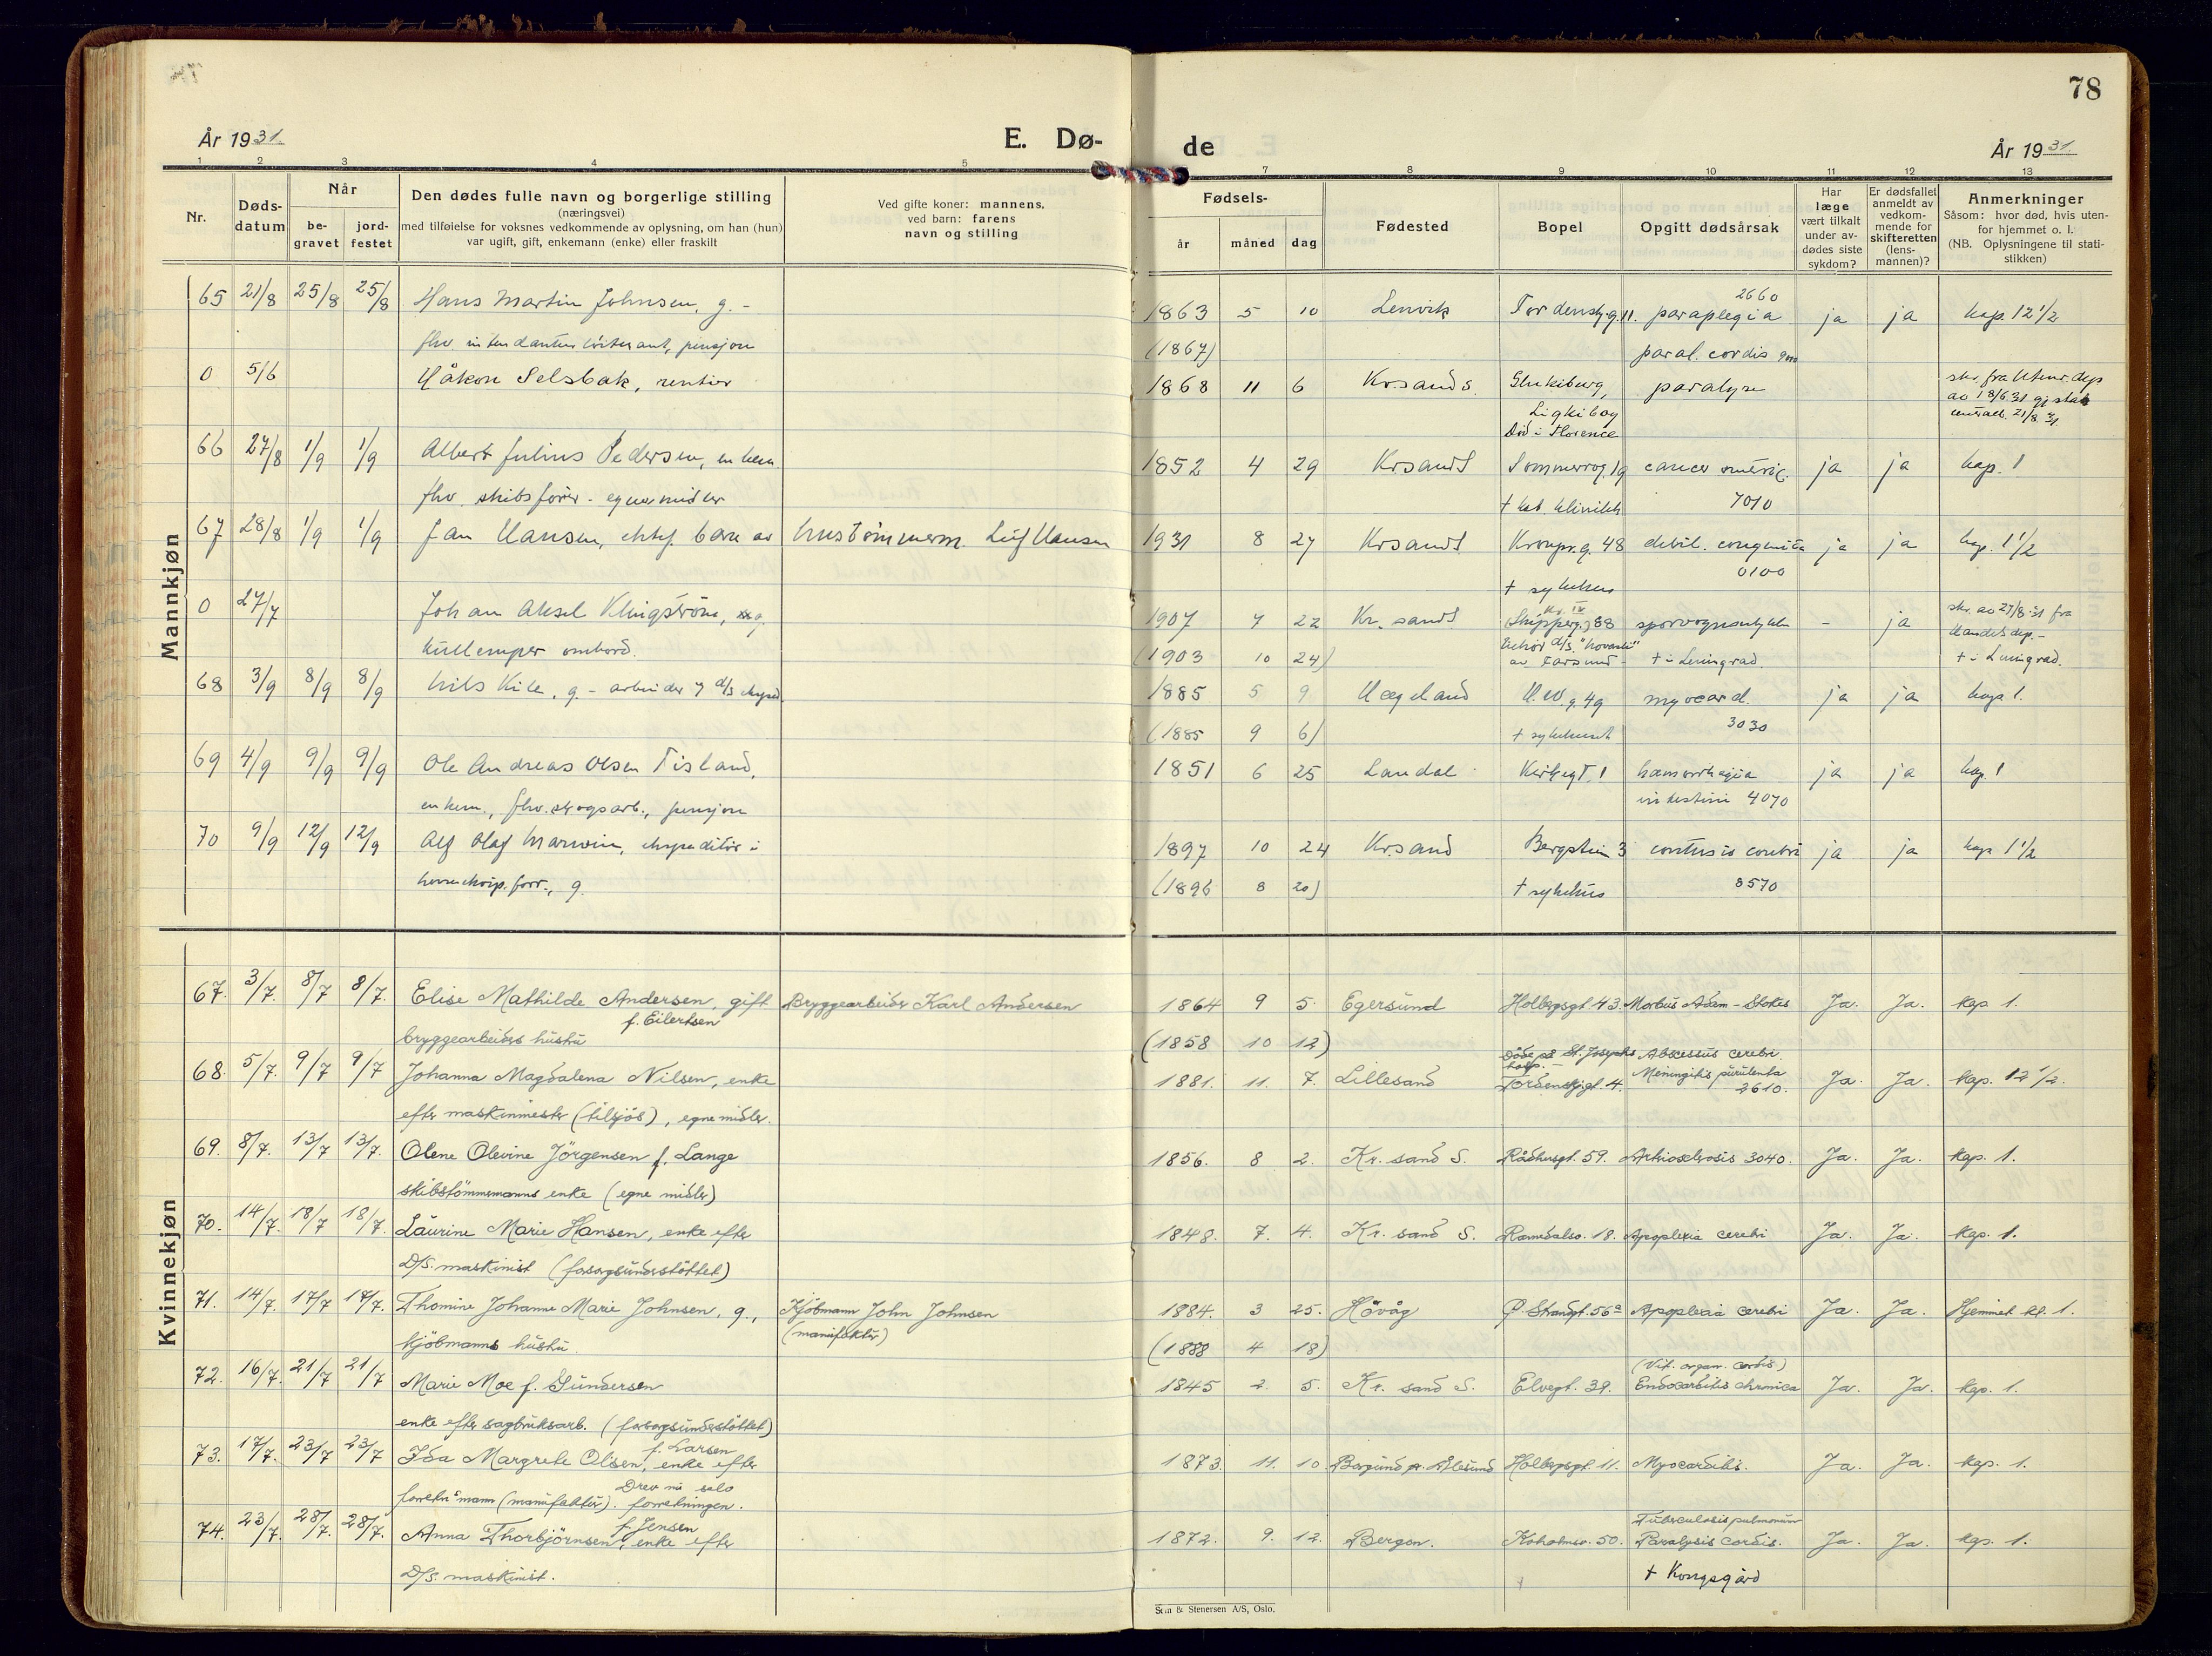 78
År 1931.
E. Dø-
de
År 1931.
1 2 3 4 5 7 8 9 10 11 12 13
Nr.
Døds-
datum
Når
be-
gravet
jord-
festet
Den dødes fulle navn og borgerlige stilling
(næringsvei)
med tilføielse for voksnes vedkommende av oplysning, om han (hun)
var ugift, gift, enkemann (enke) eller fraskilt
Ved gifte koner: mannens,
ved barn: farens
navn og stilling
Fødsels-
år måned dag
Fødested
Bopel
Opgitt dødsårsak
Har
læge
vært tilkalt
under av-
dødes siste
sykdom?
Er dødsfallet
anmeldt av
vedkom-
mende for
skifteretten
(lens-
mannen)?
Anmerkninger
Såsom: hvor død, hvis uten-
for hjemmet o. l.
(NB. Oplysningene til stati-
stikken)
Mannkjøn
65 21/8 25/8 25/8 Hans Martin Johnsen, g. - 1863 5 10 Lenvik Tordenskj.g. 11. paraplegia 2660 ja ja kap. 12 1/2
fhv. pensjon (1867) paral. cordis
0 5/6 Håkon Selsbak, rentier 1868 11 6 Kr.sand S. paralyse skr. fra Utenr. dep.
av 18/6.31
21/8 31
Død i Florence
66 27/8 1/9 1/9 Albert Julius Pedersen, enkem. 1852 4 29 Krsand S cancer ja ja kap. 1
fhv. skibsfører - egne midler + kat. klinikk 7010
67 28/8 1/9 1/9 Jan Hansen, ektef. barn av hustømmerm. Leif Hansen 1931 8 27 Krsand S Kronpr.g. 48 debil. congenita ja ja kap. 1 1/2
0100
+ sykehus
0 27/7 Johan Aksel Klingström, g. 1907 7 22 Kr. sand S Skipperg. 88 sporvognsulykke - ja skr. av 27/8 31 fra
Handelsdep. -
kullemper ombord. (1903 10 24) av Farsund - + i Leningrad. + i Leningrad.
68 3/9 8/9 8/9 Nils Kile, g. - arbeider 1885 5 9 Hægeland H.W.g. 49 myocard. ja ja kap 1.
(1885 9 6) + sykehuset 3030
69 4/9 9/9 9/9 Ole Andreas Olsen Tisland, 1851 6 25 Laudal Kirkegt. 1 hæmorrhagia ja ja kap. 1
enkem., fhv. skogsarb., pensjon intestini 4070
70 9/9 12/9 12/9 Alf Olaf Marwin, ekspeditör i 1897 10 24 Kr.sand Bergstien 3 contusio cerebri ja ja kap 1 1/2
forr., g. (1896 8 20) + sykehus 8570
Kvinnekjøn
67. 3/7. 8/7 8/7. Elise Mathilde Andersen, gift Bryggearbeider Karl Andersen 1864 9 5. Egersund Holbergsgt. 43. Morbus Adam-Stokes Ja. Ja. kap 1.
f. Eilertsen
bryggearbeiders hustru (1858 10 12)
68. 5/7. 9/7 9/7 Johanna Magdalena Nilsen, enke 1881. 11. 7. Lillesand Døde på St. Josephs hosp. - Tordenskjgt. 4. Abscessus cerebri. Meningitis purulenta 2610. Ja. Ja. kap. 12 1/2.
efter maskinmester (tilsjøs), egne midler.
69. 8/7. 13/7 13/7. Olene Olevine Jörgensen f. Lange 1856. 8 2. Kr. sand S. Rådhusgt. 59. Arteriosclerosis 3040. Ja. Ja. kap. 1.
skibstömmermanns enke (egne midler)
70. 14/7. 18/7 18/7. Laurine Marie Hansen, enke efter 1848. 7. 4. Kr. sand S. Ramdalsv. 18. Apoplexia cerebri Ja. Ja. kap. 1.
D/S. maskinist (forsorgsunderstöttet)
71. 14/7. 17/7 17/7. Thomine Johanne Marie Johnsen, g., Kjöbmann John Johnsen 1884. 3 25. Hövåg Ø. Strandgt. 56a Apoplexia cerebri Ja. Ja. Hjemmet kl. 1.
kjöbmanns hustru. (manufaktur) (1888 4 18)
72. 16/7. 21/7 21/7 Marie Moe f. Gundersen 1845 2. 5. Kr. sand S. Elvegt. 39. (Vit. organ. cordis) Endocarditis chronica Ja. Ja. kap. 1.
enke efter sagbruksarb. (forsorgsunderstöttet)
73. 17/7. 23/7 23/7 Ida Margrete Olsen, f. Larsen enke efter 1873. 11. 10. Borgund pr. Ålesund Holbergsgt. 11. Myocarditis. Ja. Ja. kap. 1.
forretn.mann (manufaktur). Drev nu selv forretningen.
74. 23/7. 28/7. 28/7. Anna Thorbjörnsen, f. Jensen enke efter 1872. 9. 12. Bergen. Koholmsv. 50. Tuberculosis pulmonum Paralysis cordis. Ja. Ja. kap. 1.
D/S. maskinist. + Kongsgård
& Stenersen A/S, Oslo.